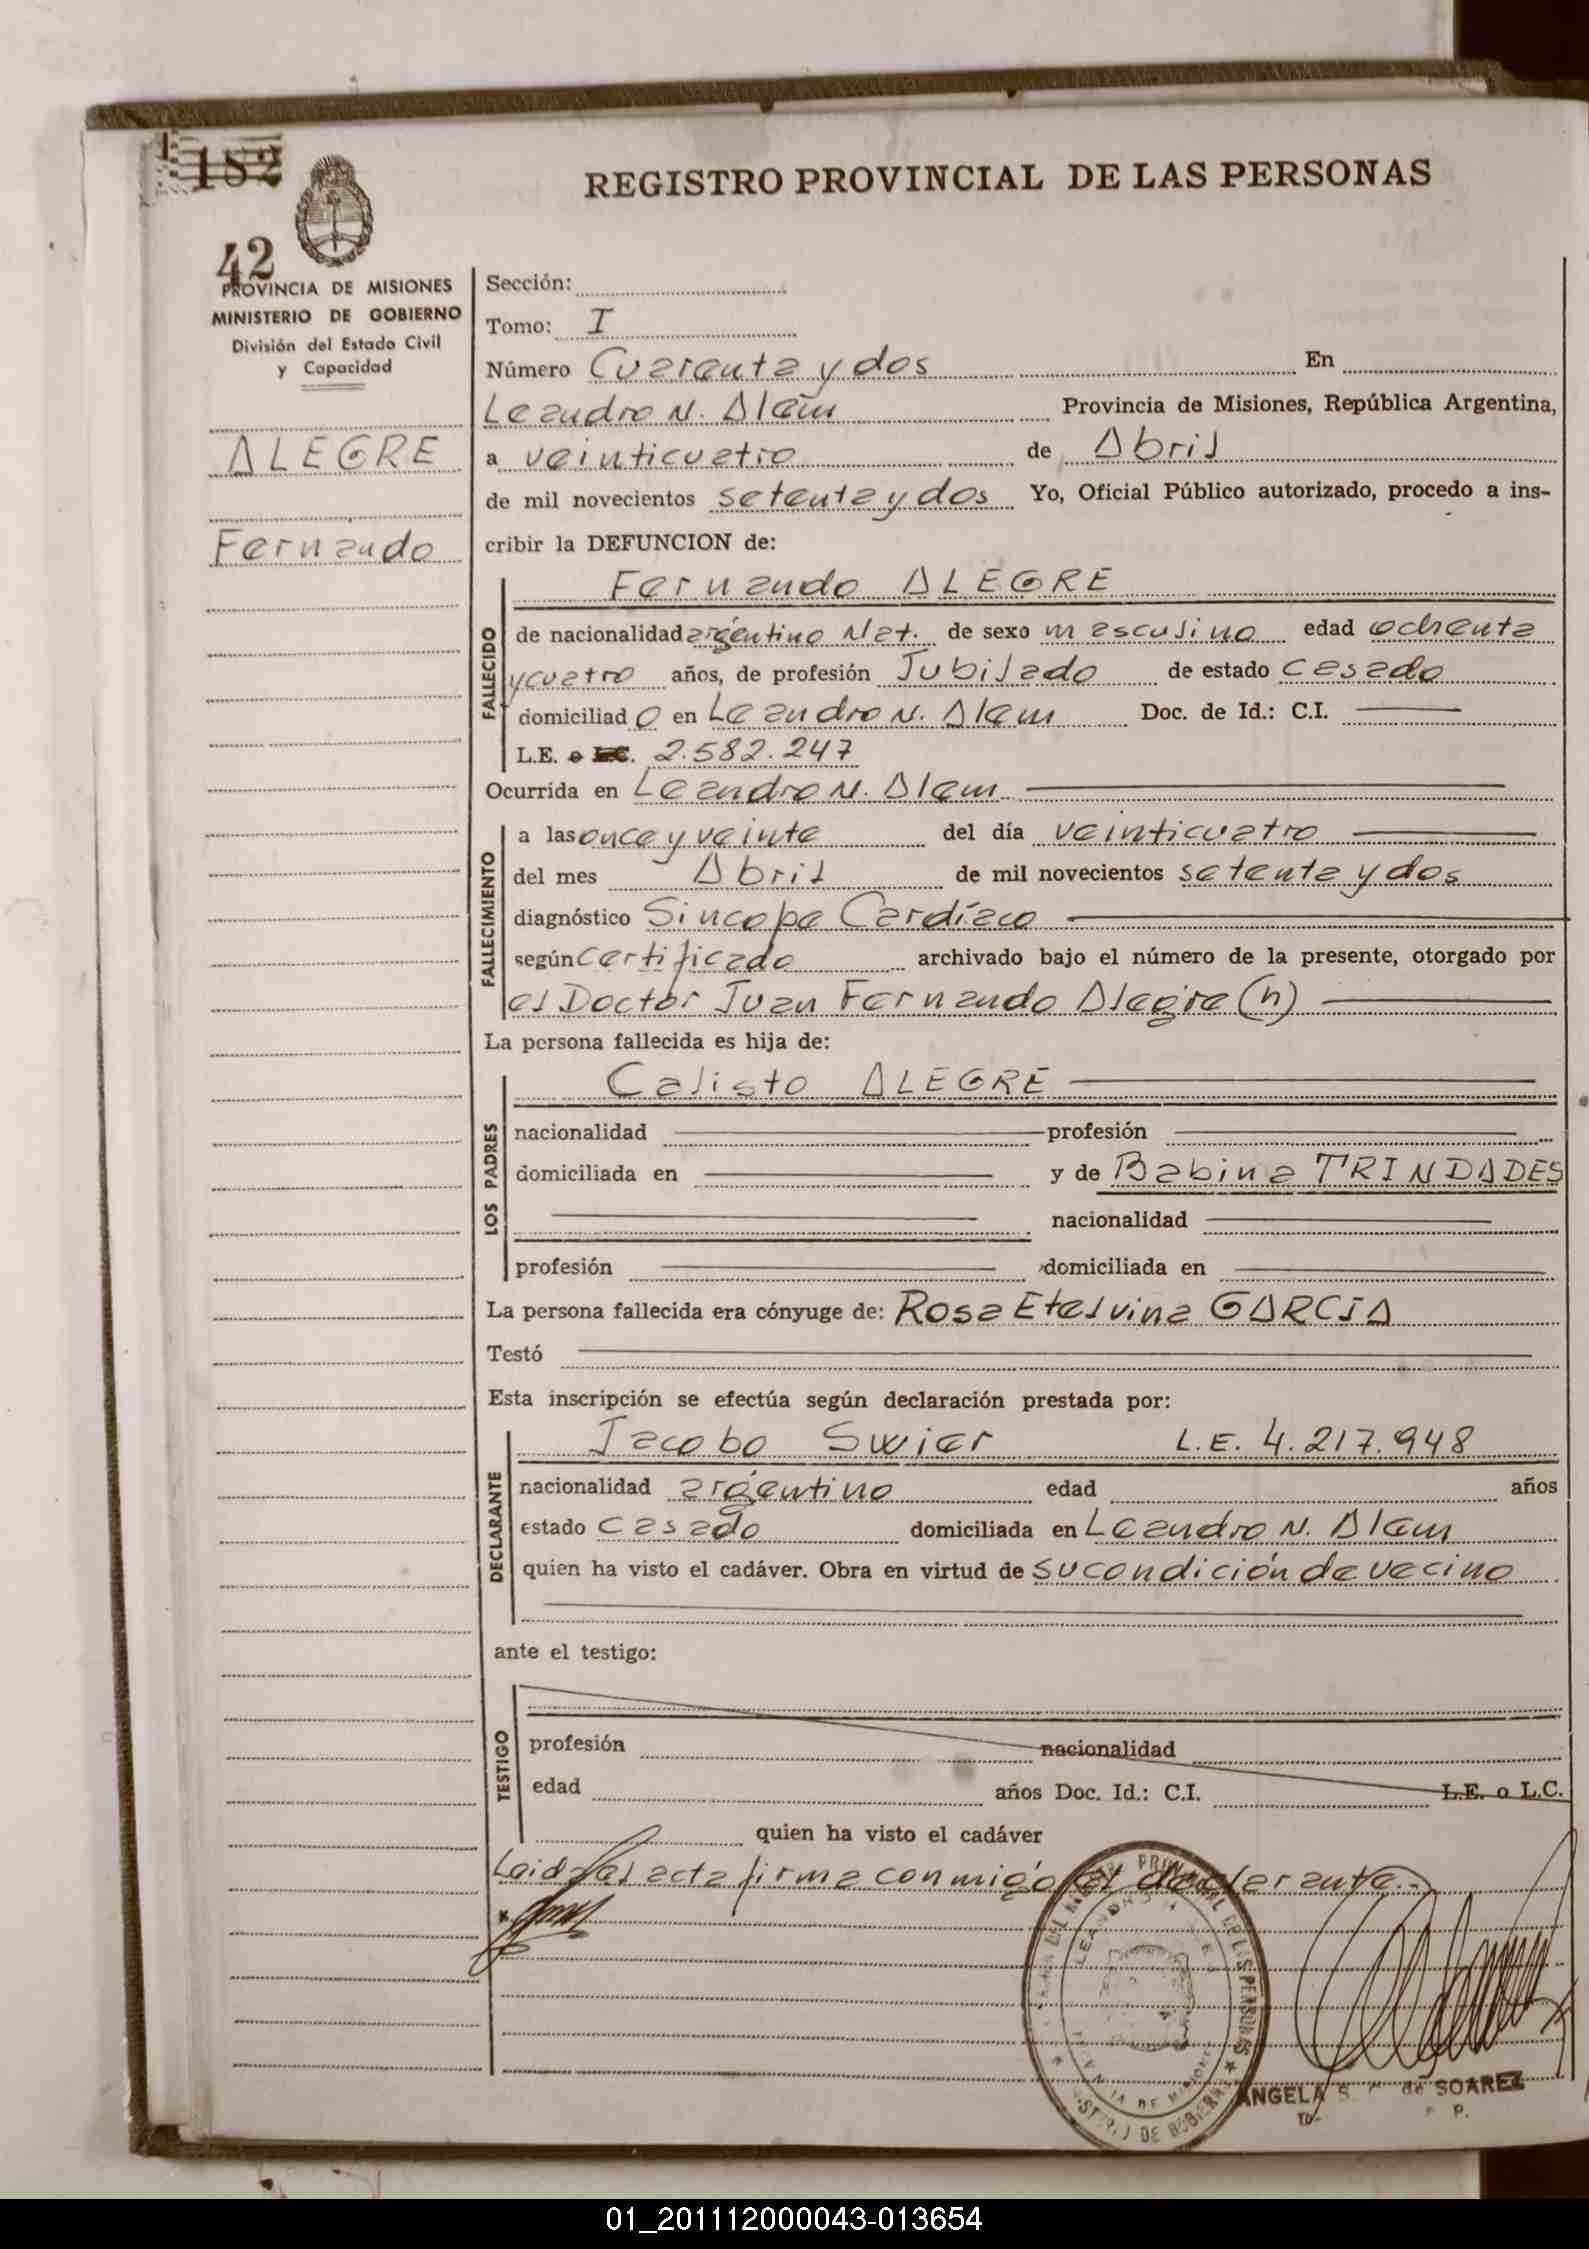 182
42
REGISTRO PROVINCIAL DE LAS PERSONAS
PROVINCIA DE MISIONES
MINISTERIO DE GOBIERNO
División del Estado Civil
y Capacidad
ALEGRE
Fernando
Sección:
Tomo: I
Número Cuarenta y dos En
Leandro N. Alem Provincia de Misiones, República Argentina,
a veinticuatro de Abril
de mil novecientos setenta y dos Yo, Oficial Público autorizado, procedo a ins-
cribir la DEFUNCION de:
FALLECIDO
Fernando ALEGRE
de nacionalidad argentino Nat. de sexo masculino edad ochenta
y cuatro años, de profesión Jubilado de estado casado
domiciliado en Leandro N. Alem Doc. de Id.: C.I.
L.E. o L.C. 2.582.247
Ocurrida en Leandro N. Alem
FALLECIMIENTO
a las once y veinte del día veinticuatro
del mes Abril de mil novecientos setenta y dos
diagnóstico Sincope Cardíaco
según certificado archivado bajo el número de la presente, otorgado por
el Doctor Juan Fernando Alegre (h)
La persona fallecida es hija de:
LOS PADRES
Calisto ALEGRE
nacionalidad profesión
domiciliada en y de Babina TRINDADES
nacionalidad
profesión domiciliada en
La persona fallecida era cónyuge de: Rosa Etelvina GARCIA
Testó
Esta inscripción se efectúa según declaración prestada por:
DECLARANTE
Jacobo Swier L.E. 4.217.948
nacionalidad argentino edad años
estado casado domiciliada en Leandro N. Alem
quien ha visto el cadáver. Obra en virtud de su condición de vecino
ante el testigo:
TESTIGO
profesión nacionalidad
edad años Doc. Id.: C.I. L.E. o L.C.
quien ha visto el cadáver
Leida el acta firma conmigo el declarante.
ANGELA S. de SOAREZ
01_201112000043-013654